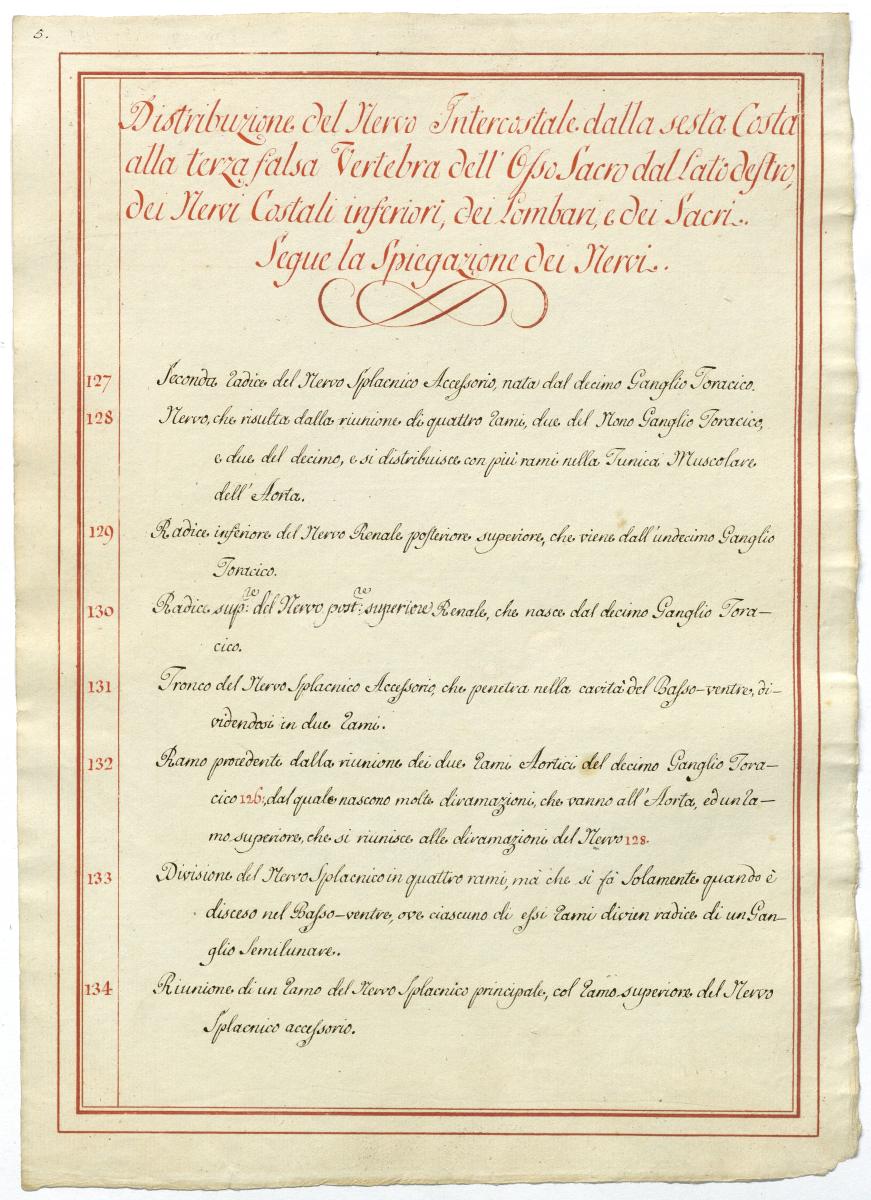 5.
Distribuzione del Nervo Intercostale dalla sesta Costa
alla terza falsa Vertebra dell' Osso Sacro dal Lato destro,
dei Nervi Costali inferiori, dei Lombari, e dei Sacri.
Segue la Spiegazione dei Nervi.
127 Seconda radice del Nervo Splacnico Accessorio, nata dal decimo Ganglio Toracico.
128 Nervo, che risulta dalla riunione di quattro rami, due del Nono Ganglio Toracico,
e due del decimo, e si distribuisce con più rami nella Tunica Muscolare
dell' Aorta.
129 Radice inferiore del Nervo Renale posteriore superiore, che viene dall'undecimo Ganglio
Toracico.
130 Radice sup:re del Nervo post:re superiore Renale, che nasce dal decimo Ganglio Tora-
cico.
131 Tronco del Nervo Splacnico Accessorio, che penetra nella cavità del Basso-ventre, di-
videndosi in due rami.
132 Ramo procedente dalla riunione dei due rami Aortici del decimo Ganglio Tora-
cico 126:, dal quale nascono molte diramazioni, che vanno all'Aorta, ed un ra-
mo superiore, che si riunisce alle diramazioni del Nervo 128.
133 Divisione del Nervo Splacnico in quattro rami, mà che si fà solamente quando è
disceso nel Basso-ventre, ove ciascuno di essi rami divien radice di un Gan-
glio Semilunare.
134 Riunione di un ramo del Nervo Splacnico principale, col ramo superiore del Nervo
Splacnico accessorio.